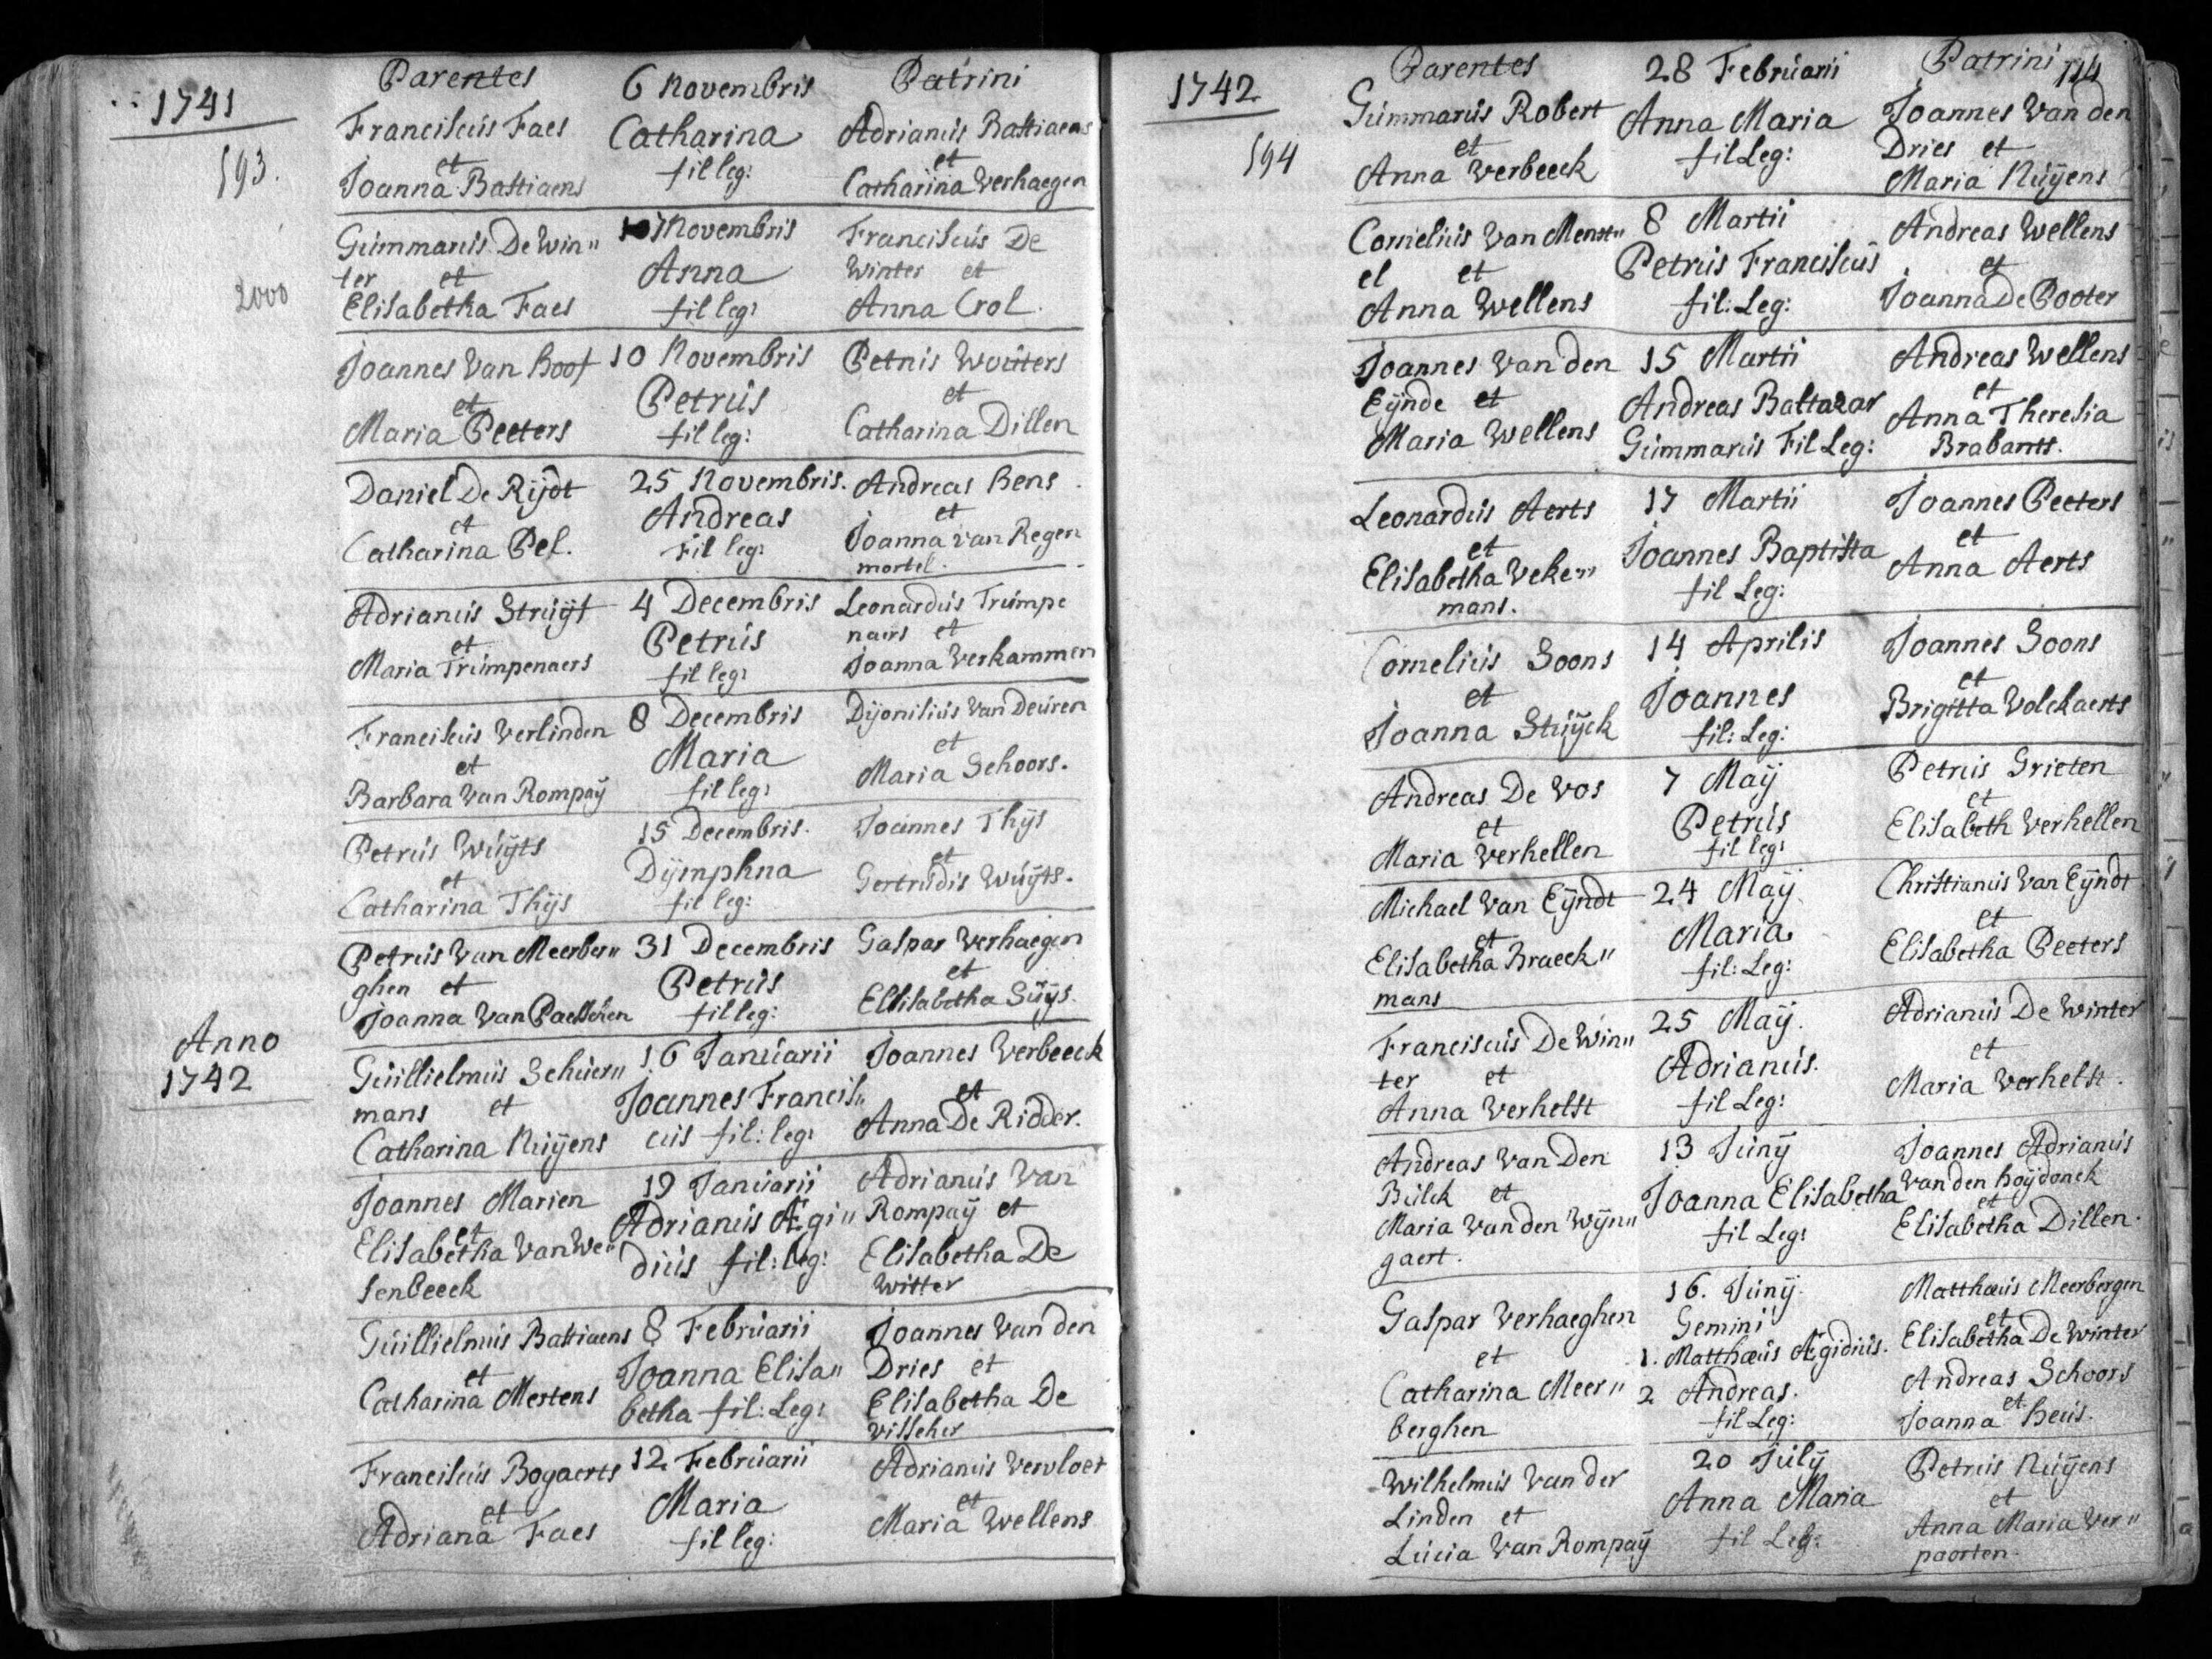 1741
593.
2000
Anno
1742
Parentes 6 Novembris Patrini
Franciscus Faes Catharina Adrianus Bastiaens
et fil leg: et
Joanna Bastiaens Catharina Verhaegen
Gummarus De Win" 7 Novembris Franciscus De
ter et Anna Winter et
Elisabetha Faes fil leg: Anna Crol.
Joannes Van hoof 10 Novembris Petrus Wouters
et Petrus et
Maria Peeters fil leg: Catharina Dillen
Daniel De Rijdt 25 Novembris. Andreas hens
et Andreas et
Catharina Pel. fil leg: Joanna van Regen
mortel.
Adrianus Struyf 4 Decembris Leonardus Trumpe
et Petrus naers et
Maria Trumpenaers fil leg: Joanna Verkammen
Franciscus Verlinden 8 Decembris Dijonisius Van Deuren
et Maria et
Barbara Van Rompaÿ fil leg: Maria Schoors.
Petrus Wuÿts 15 Decembris. Joannes Thÿs
et Dÿmphna et
Catharina Thÿs fil leg: Gertrudis Wuÿts.
Petrus Van Meerber" 31 Decembris Gaspar Verhaegen
ghen et Petrus et
Joanna Van fil leg: Elisabetha Suÿs.
Guillielmus Schuer" 16 Januarii Joannes Verbeeck
mans et Joannes Francis" et
Catharina Nuÿens cus fil: leg: Anna De Ridder.
Joannes Marien 19 Januarii Adrianus Van
et Adrianus Ægi" Rompaÿ et
Elisabetha Van We" dius fil: leg: Elisabetha De
senbeeck Witter
Guillielmus Bastiaens 8 Februarii Joannes Van den
et Joanna Elisa" Dries et
Catharina Mertens betha fil: Leg: Elisabetha De
visscher
Franciscus Bogaerts 12 Februarii Adrianus Vervloet
et Maria et
Adriana Faes fil leg: Maria Wellens
1742
594
Parentes 28 Februarii Patrini 114
Gummarus Robert Anna Maria Joannes Van den
et fil Leg: Dries et
Anna Verbeeck Maria Nuÿens
Cornelius Van Menst" 8 Martii Andreas Wellens
el et Petrus Franciscus et
Anna Wellens fil: Leg: Joanna De Pooter
Joannes Van den 15 Martii Andreas Wellens
Eÿnde et Andreas Baltazar et
Maria Wellens Gummarus Fil Leg: Anna Theresia
Brabants.
Leonardus Aerts 17 Martii Joannes Peeters
et Joannes Baptista et
Elisabetha Veke" fil Leg: Anna Aerts
mans.
Cornelius Soons 14 Aprilis Joannes Soons
et Joannes et
Joanna Stuÿck fil: Leg: Brigitta Volckaerts
Andreas De Vos 7 Maÿ Petrus Grieten
et Petrus et
Maria Verhellen fil leg: Elisabeth Verhellen
Michael Van Eÿndt 24 Maÿ. Christianus Van Eÿndt
et Maria et
Elisabetha Braeck" fil: Leg: Elisabetha Peeters
mans
Franciscus De Win" 25 Maÿ. Adrianus De Winter
ter et Adrianus. et
Anna Verhelst fil Leg: Maria Verhelst.
Andreas Van Den 13 Junÿ Joannes Adrianus
Bulck et Joanna Elisabetha Van den hoÿdonck
Maria Van den Wÿn" fil Leg: et
gaert. Elisabetha Dillen.
Gaspar Verhaeghen 16. Junÿ. Matthæus Meerbergen
et Gemini et
Catharina Meer" 1. Matthæus Ægidius. Elisabetha De Winter
berghen 2 Andreas. Andreas Schoors
fil Leg: et
Joanna heus.
Wilhelmus Van der 20 Julÿ Petrus Nuÿens
Linden et Anna Maria et
Lucia Van Rompaÿ fil Leg: Anna Maria Ver"
poorten.